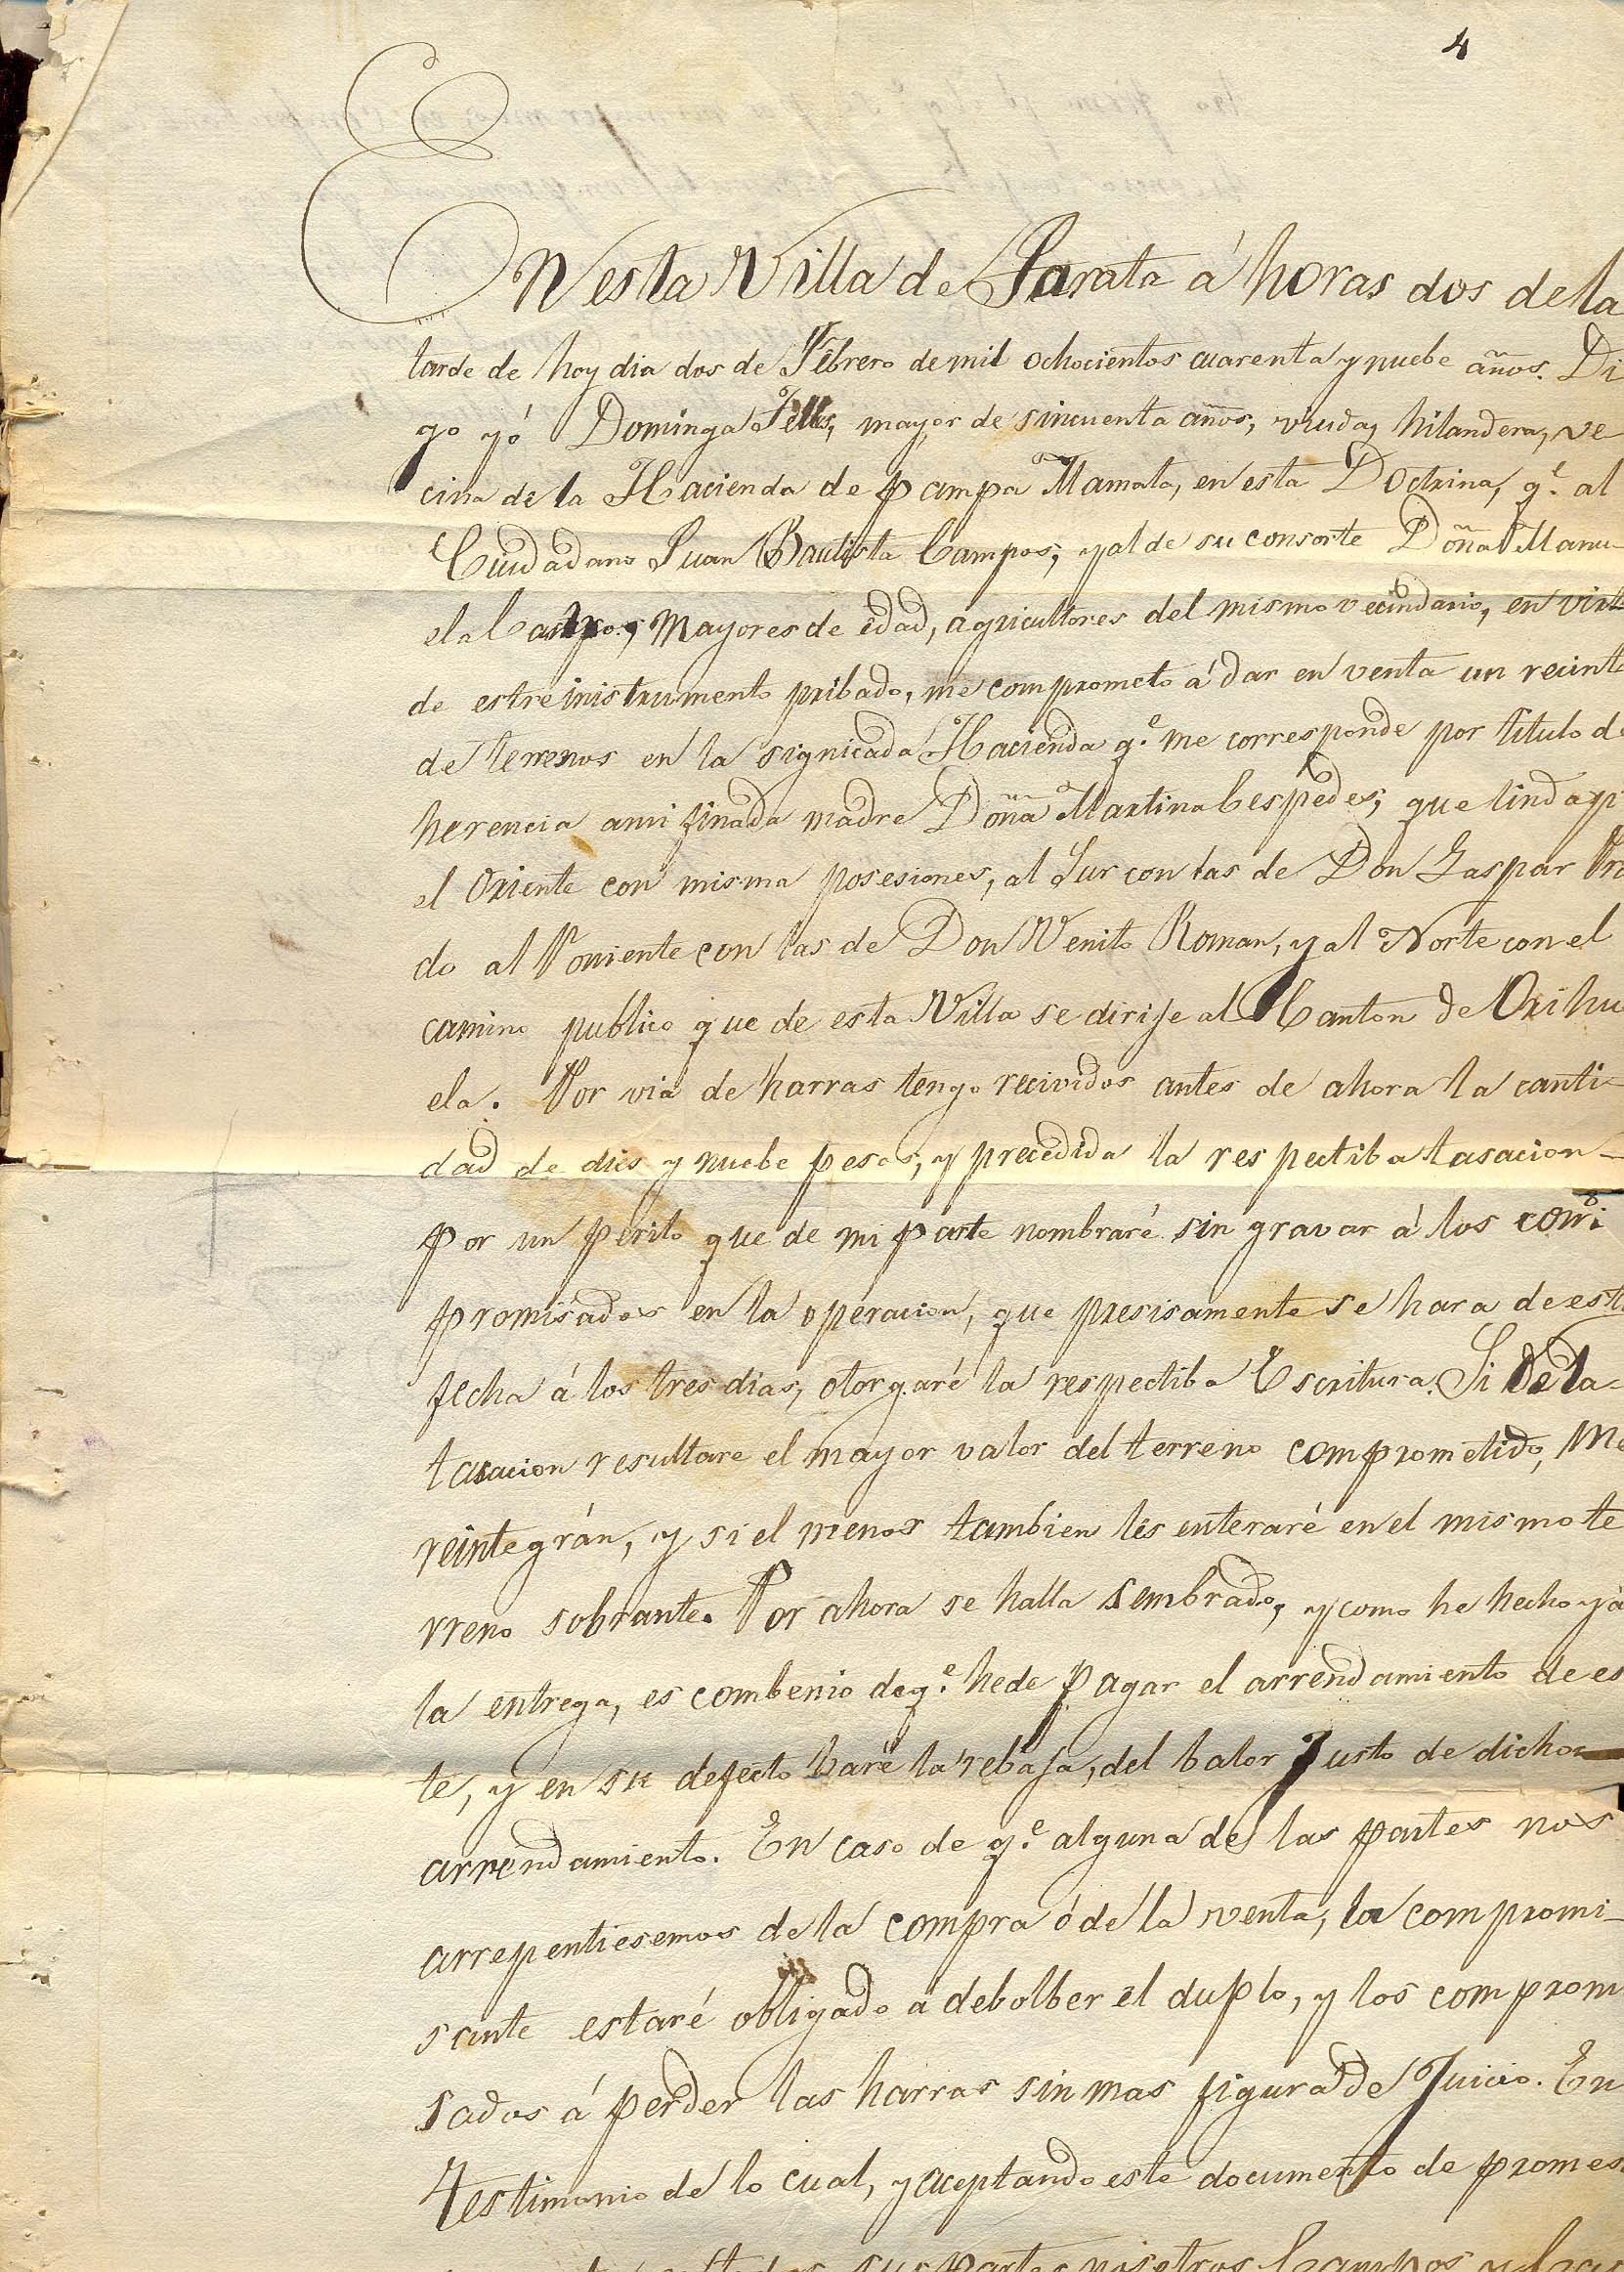 4
En esta Villa de Tarata á horas dos de la
tarde de hoy dia dos de Febrero de mil ochocientos cuarenta y nuebe años. Di
go yó Dominga Telles, mayor de sincuenta años, viuda, hilandera, ve
cina de la Hacienda de Pampa Mamata, en esta Doctrina, q.e al
Ciudadano Juan Bautista Campos, y al de su consorte Doña Manu-
ela Castro, mayores de edad, agricultores del mismo vecindario, en virt
de estre instrumento pribado, me comprometo á dar en venta un recinto
de terrenos en la signicada Hacienda q.e me corresponde por titulo de
herencia a mi finada madre Doña Martina Cespedes, que linda p.r
el Oriente con misma posesiones, al Sur con las de Don Gaspar
do al Poniente con las de Don Venito Roman, y al Norte con el
camino publico que de esta Villa se dirije al Canton de Orihu
ela. Por via de harras tengo recividos antes de ahora la canti-
dad de dies y nuebe pesos, y precedida la respectiba tasacion-
por un perito que de mi parte nombraré sin gravar á los com
promisados en la operacion, que presisamente se hara de esta
fecha á los tres dias, otorgaré la respectiba Escritura. Si de la-
tasacion resultare el mayor valor del terreno comprometido, me
reintegrán, y si el menos tambien les enteraré en el mismo te
rreno sobrante. Por ahora se halla sembrado, y como he hecho yá
la entrega, es combenio de q.e he de pagar el arrendamiento de es
te, y en su defecto haré la rebaja, del balor justo de dicho-
arrendamiento. En caso de q.e alguna de las partes nos
arrepentiesemos de la compra ó de la venta, la compromi-
sante estaré obligado a debolber el duplo, y los compromi
sados á perder las harras sin mas figura de Juicio. En
Testimonio de lo cual, y aceptando este documento de promes
sus partes nosotros Campos y